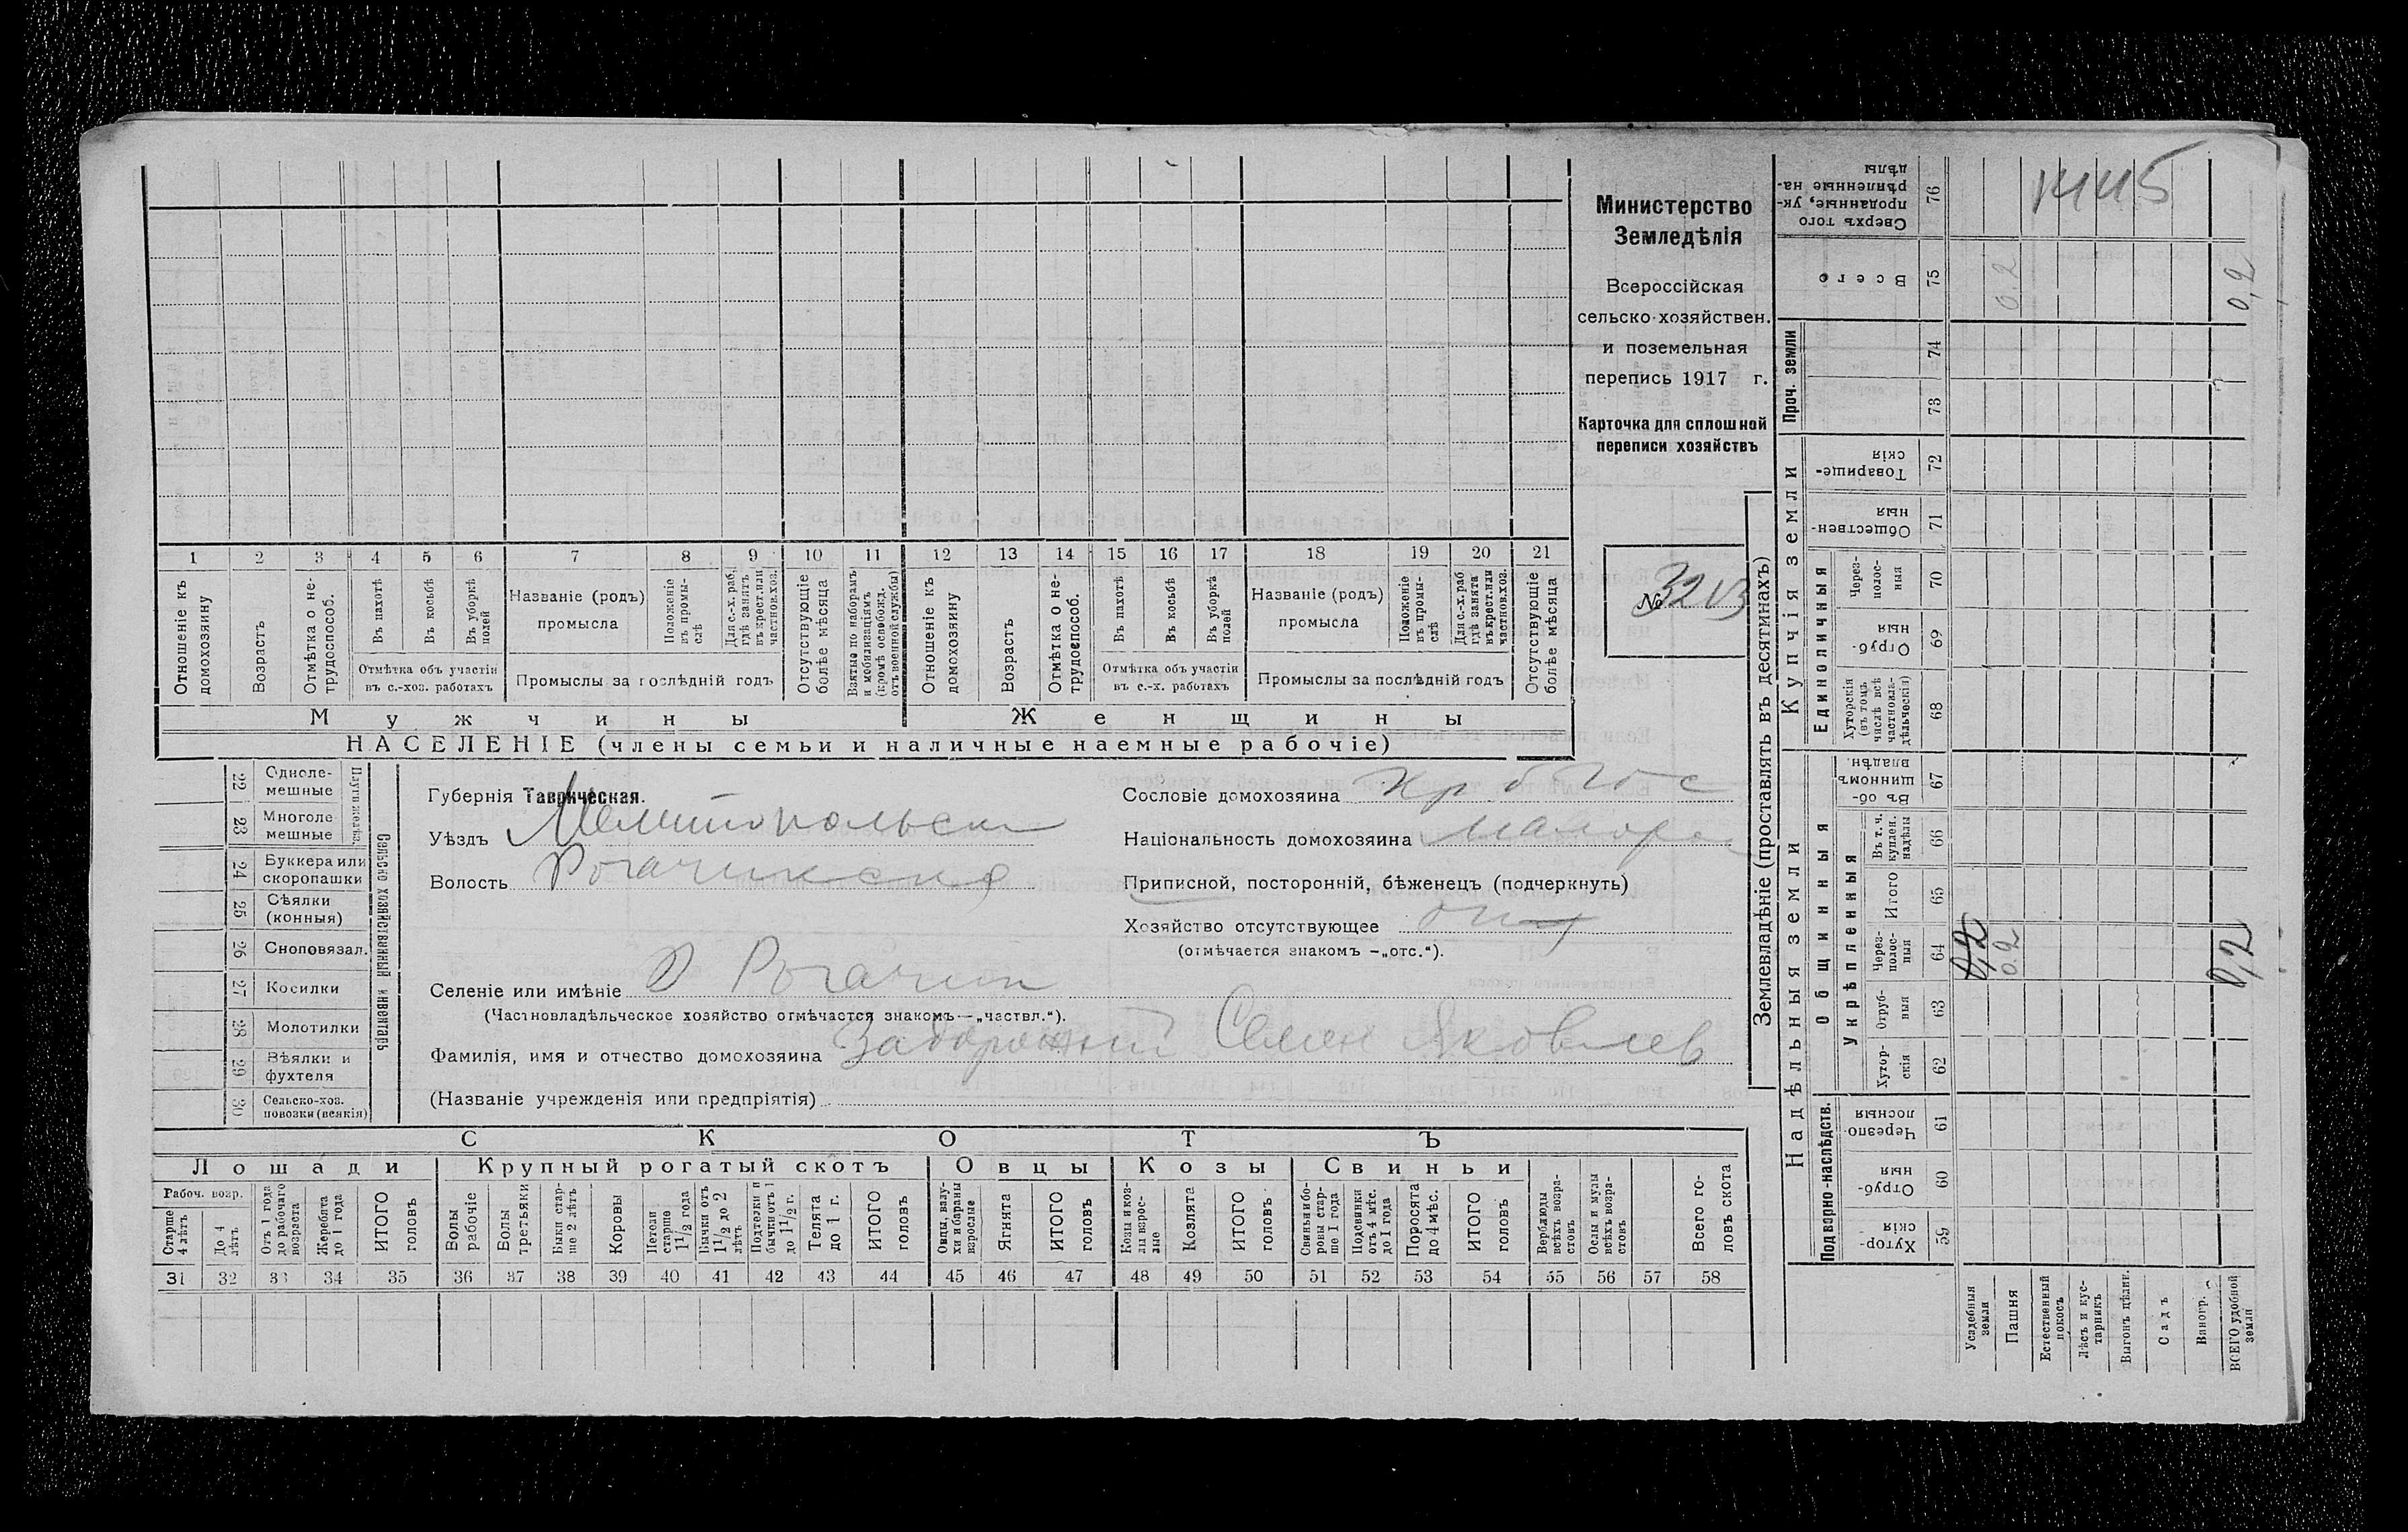 Министерство
Земледѣлія
Всероссійская
сельско-хозяйствен.
и поземельная
перепись 1917 г.
Карточка для сплошной
переписи хозяйствъ
№ 3213
1 2 3 4 5 6 7 8 9 10 11 12 13 14 15 16 17 18 19 20 21
Отношеніе къ домохозяину
Возрастъ
Отмѣтка о нетрудоспособ.
Въ пахотѣ
Въ косьбѣ
Въ уборкѣ полей
Отмѣтка объ участіи
въ с.-хоз. работахъ
Названіе (родъ)
промысла
Положеніе въ промыслѣ
Для с.-х. раб. гдѣ занятъ въ крест. или частнов. хоз.
Промыслы за послѣдній годъ
Отсутствующіе болѣе мѣсяца
Взятые по наборамъ и мобилизаціямъ (кромѣ освобожд. отъ военной службы)
Отношеніе къ домохозяину
Возрастъ
Отмѣтка о нетрудоспособ.
Въ пахотѣ
Въ косьбѣ
Въ уборкѣ полей
Отмѣтка объ участіи
въ с.-х. работахъ
Названіе (родъ)
промысла
Положеніе въ промыслѣ
Для с.-х. раб гдѣ занята въ крест. или частнов. хоз.
Промыслы за послѣдній годъ
Отсутствующіе болѣе мѣсяца
Мужчины Женщины
НАСЕЛЕНІЕ (члены семьи и наличные наемные рабочіе)
22 Одноле-
мешные
23 Многоле
мешные
Плуги желѣз.
24 Буккера или
скоропашки
25 Сѣялки
(конныя)
26 Сноповязал.
27 Косилки
28 Молотилки
29 Вѣялки и
фухтеля
30 Сельско-хоз.
повозки (всякія)
Сельско хозяйственный инвентарь
Губернія Таврическая.
Уѣздъ Мелитопольск
Волость Рогачикская
Селеніе или имѣніе Рогачик
(Частновладѣльческое хозяйство отмѣчается знакомъ—„частвл.“).
Фамилія, имя и отчество домохозяина Задорожній Семен Яковлев
(Названіе учрежденія или предпріятія)
Сословіе домохозяина
Національность домохозяина малорос
Приписной, посторонній, бѣженецъ (подчеркнуть)
Хозяйство отсутствующее
(отмѣчается знакомъ —„отс.“).
СКОТЪ
Лошади Крупный рогатый скотъ Овцы Козы Свиньи
Рабоч. возр.
Старше 4 лѣтъ
До 4 лѣтъ
Отъ 1 года до рабочаго возраста
Жеребята до 1 года
ИТОГО головъ
Волы рабочіе
Волы третьяки
Быки старше 2 лѣтъ
Коровы
Нетели старше 1 1/2 года
Бычки отъ 1 1/2 до 2 лѣтъ
Подтелки и бычки отъ 1 до 1 1/2 г.
Телята до 1 г.
ИТОГО головъ
Овцы, валухи и бараны взрослые
Ягнята
ИТОГО головъ
Козы и козлы взрослые
Козлята
ИТОГО головъ
Свиньи и бороны старше 1 года
Подсвинки отъ 4 мѣс. до 1 года
Поросята до 4 мѣс.
ИТОГО головъ
Верблюды всѣхъ возрастовъ
Ослы и мулы всѣхъ возрастовъ
Всего головъ скота
31 32 33 34 35 36 37 38 39 40 41 42 43 44 45 46 47 48 49 50 51 52 53 54 55 56 57 58
Землевладѣніе (проставлять въ десятинахъ)
Надѣльныя земли
Подворно-наслѣдств.
Хуторскія 59
Отрубныя 60
Черезполосныя 61
Общинныя
Укрѣпленныя
Хуторскія 62
Отрубныя 63
Черезполосныя 64
Итого 65
Въ т. ч. куплен. надѣлы 66
Въ общинномъ владѣн. 67
Купчія земли
Единоличныя
Хуторскія (въ томъ числѣ всѣ частновладѣльческія) 68
Отрубныя 69
Черезполосныя 70
Общественныя 71
Товарищескія 72
Проч. земли
73 74
Всего 75
Сверхъ того проданные, укрѣпленные надѣлы 76
Усадебныя земли
Пашня
Естественный покосъ
Лѣсъ и кустарникъ
Выгонъ цѣлин.
Садъ
Виногр.
ВСЕГО удобной земли
0,2
0.2
0,2
0.2
0,2